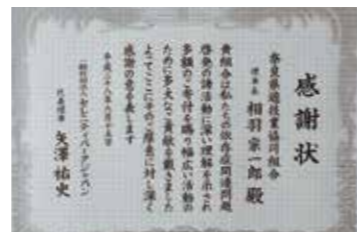 感謝状
奈良県遊技業協同組合
理事長 相羽 宗一郎 殿
貴組合は私たちの依存症問題
啓発の諸活動に深い理解を示され
多額のご寄付を賜り幅広い活動の
ために多大なご貢献を戴きました
よってここにその功績に対し深く
感謝の意を表します
平成二十八年六月
代表理事 矢澤 祐史